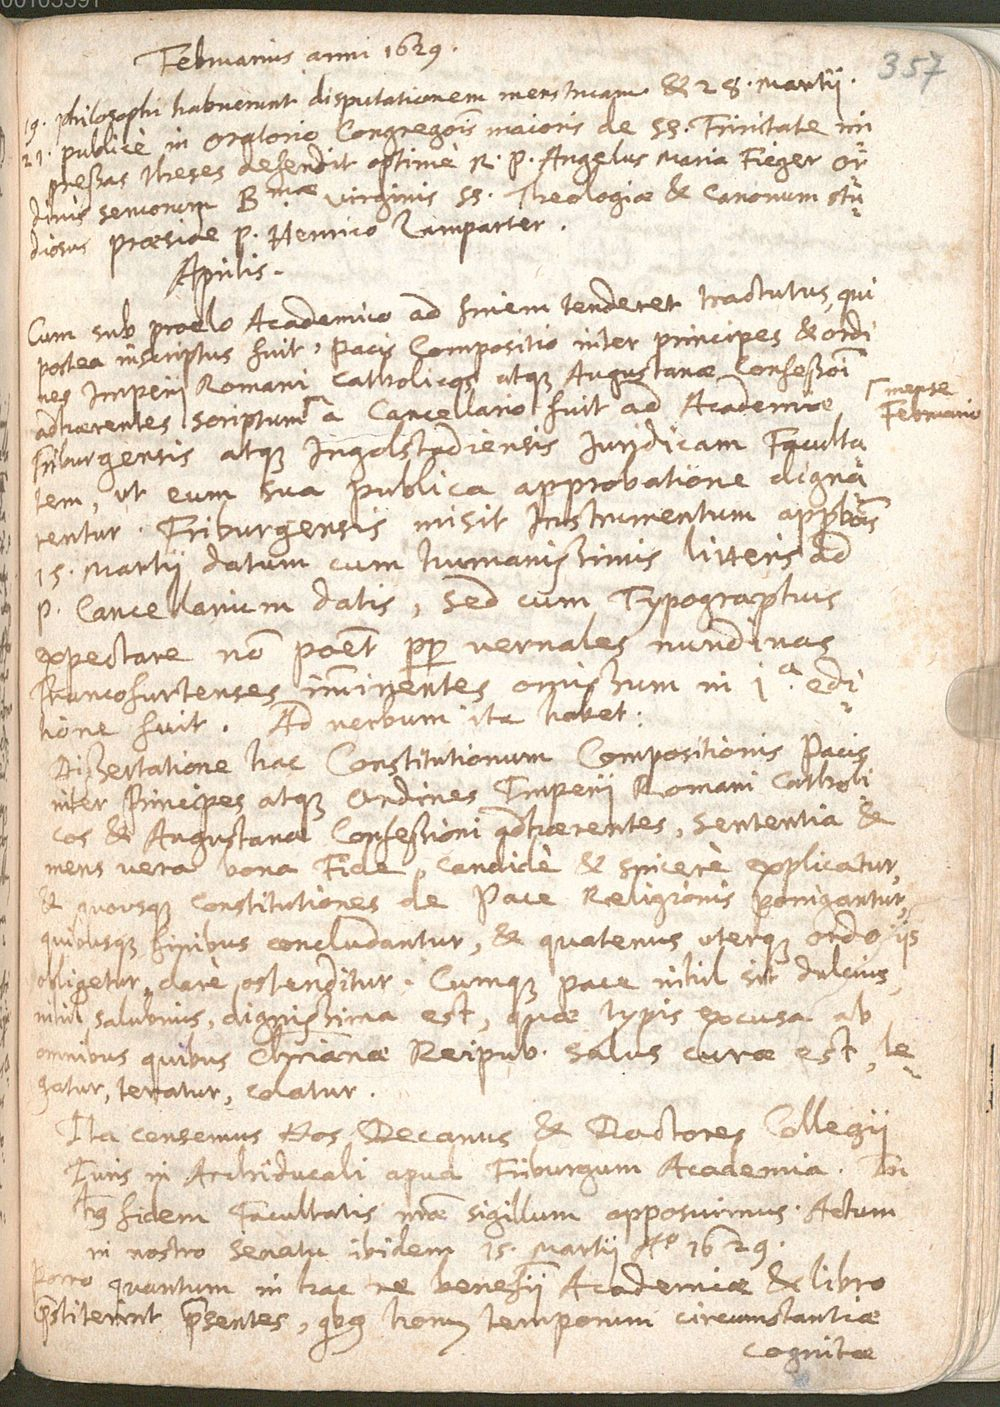 00103591
357
Februarius anni 1629.
19. philosophi habuerunt disputationem menstruam & 28. Martii.
21. publicè in oratorio Congregõis maioris de SS. Trinitate im
pressas theses defendit optimè R. P. Angelus Maria Fieger or
dinis servorum B.mae Virginis SS. Theologiæ & Canonum stu
diosus præside P. Henrico Lamparter.
Aprilis.
Cum sub prælo Academico ad finem tenderet tractatus, qui
postea inscriptus fuit, Pacis Compositio inter principes & ordi
nes Imperij Romani Catholicos atque Augustanæ Confessioni
adhærentes scriptum ⌈ à Cancellario fuit ad Academiæ
⌈ mense
Februario
Friburgensis atque Ingolstadiensis Juridicam Faculta
tem, ut eum sua publica approbatione digna
rentur. Friburgensis misit Instrumentum appbõis
15. Martij datum cum humanissimis litteris ad
P. Cancellarium datis, sed cum Typographus
expectare nõ poẽt pp vernales nundinas
Francofurtenses im̃inentes omissum in 1.a edi
tione fuit. Ad verbum ita habet:
Dissertatione hac Constitutionum Compositionis Pacis
inter Principes atque Ordines Imperij Romani Catholi
cos & Augustanæ Confessioni adhærentes, sententia &
mens vera bona Fide, candidè & sincerè explicatur,
& quousque constitutiones de Pace Religionis porrigantur,
quibusque finibus concludantur, & quatenus uterque ordo ijs
obligetur, clarè ostenditur. Cumque pace nihil sit dulcius,
nihil salubrius, dignissima est, quæ typis excusa ab
omnibus quibus Chrianæ Reipub. salus curæ est, le
gatur, teratur, colatur.
Ita censemus Nos Decanus & Doctores Collegij
Juris in Archiducali apud Friburgum Academia. In
hs fidem Facultatis nræ sigillum apposuimus. Actum
in nostro Senatu ibidem 15. Martij Ao 1629.
Porro quantum in hac re benefij Academiæ & libro
pstiterint psentes, qbs horum temporum circumstantiæ
cognitæ